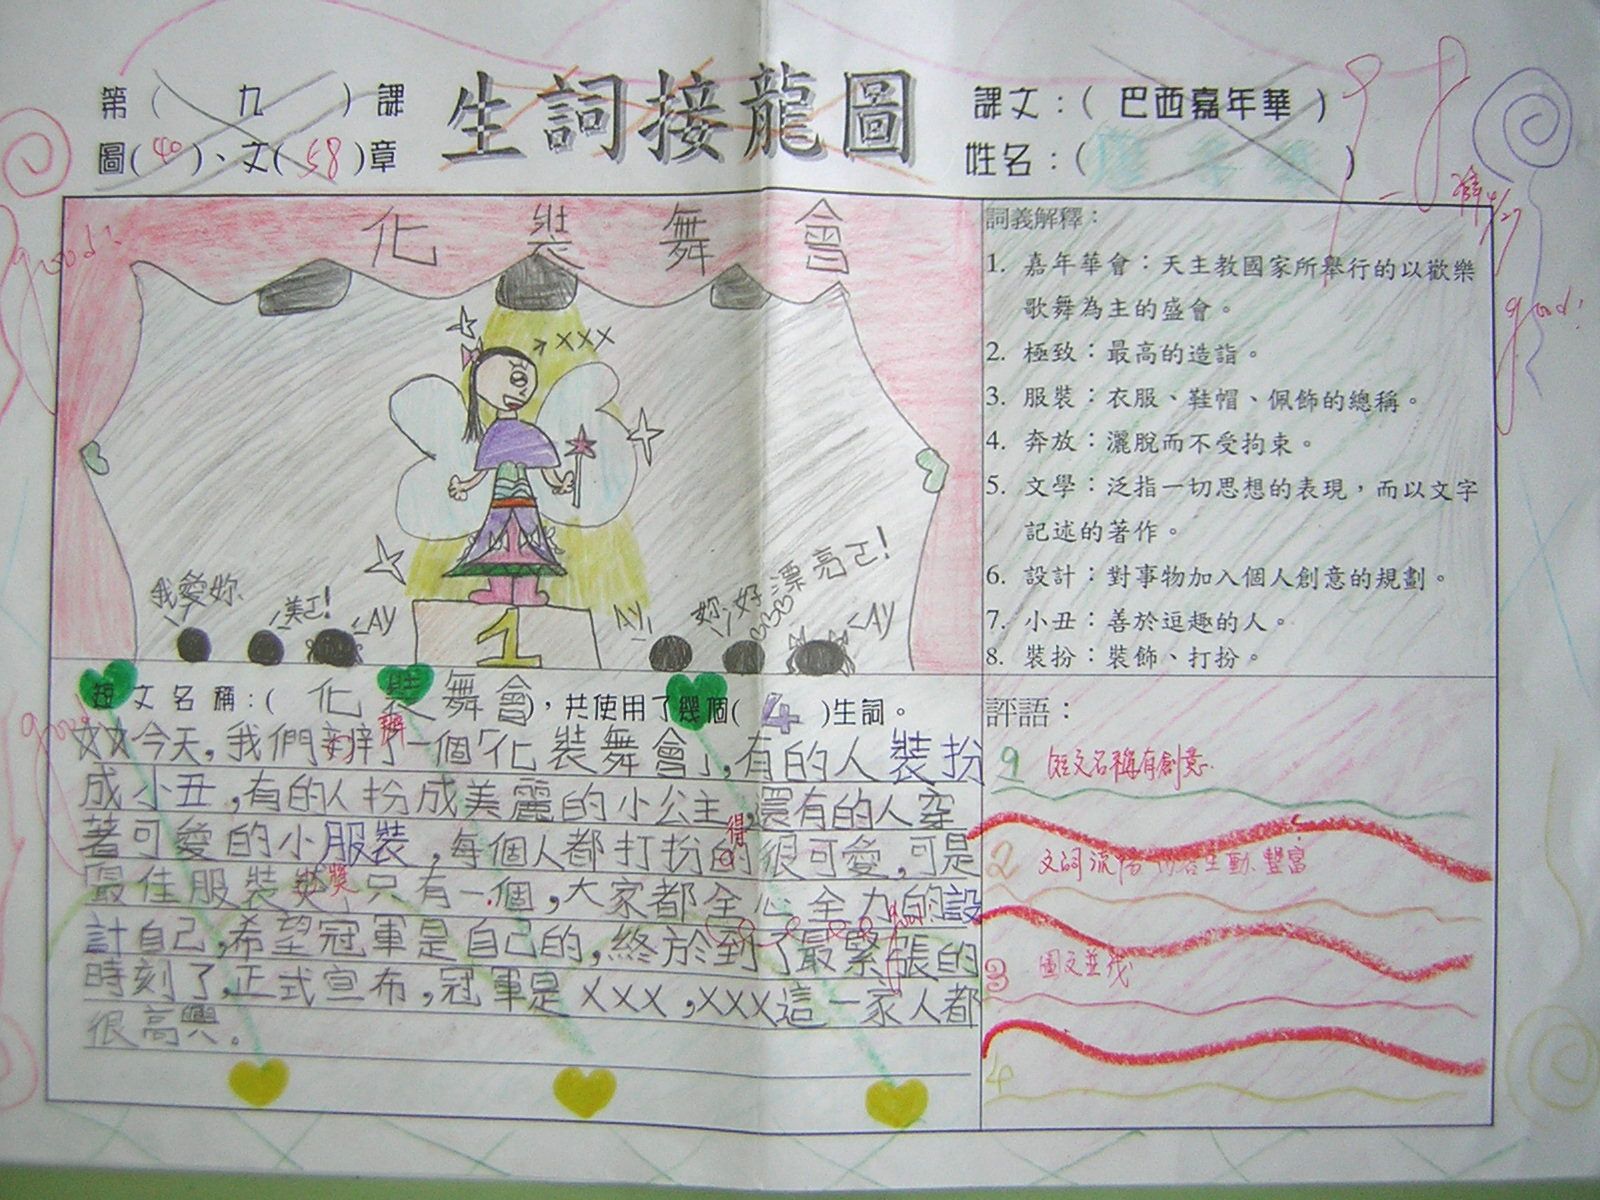 第( 九 )課
生詞接龍圖
課文:( 巴西嘉年華 )
圖(40)、文(58)章
姓名:( )
化裝舞會
xxx
我愛妳
美ㄛ!
AY
AY
妳好漂亮ㄛ!
AY
1
詞義解釋:
1. 嘉年華會:天主教國家所舉行的以歡樂
歌舞為主的盛會。
2. 極致:最高的造詣。
3. 服裝:衣服、鞋帽、佩飾的總稱。
4. 奔放:灑脫而不受拘束。
5. 文學:泛指一切思想的表現,而以文字
記述的著作。
6. 設計:對事物加入個人創意的規劃。
7. 小丑:善於逗趣的人。
8. 裝扮:裝飾、打扮。
短文名稱:( 化裝舞會 ),共使用了幾個( 4 )生詞。
今天,我們辦一個「化裝舞會」,有的人裝扮
成小丑,有的人扮成美麗的小公主,還有的人穿
著可愛的小服裝,每個人都打扮的得很可愛,可是
最佳服裝獎只有一個,大家都全心全力的設
計自己,希望冠軍是自己的,終於到了最緊張的
時刻了,正式宣布,冠軍是xxx,xxx這一家人都
很高興。
評語:
1 短文名稱有創意.
2 文詞流暢 內容生動、豐富
3 圖文並茂
4
good!
good!
good
4/27